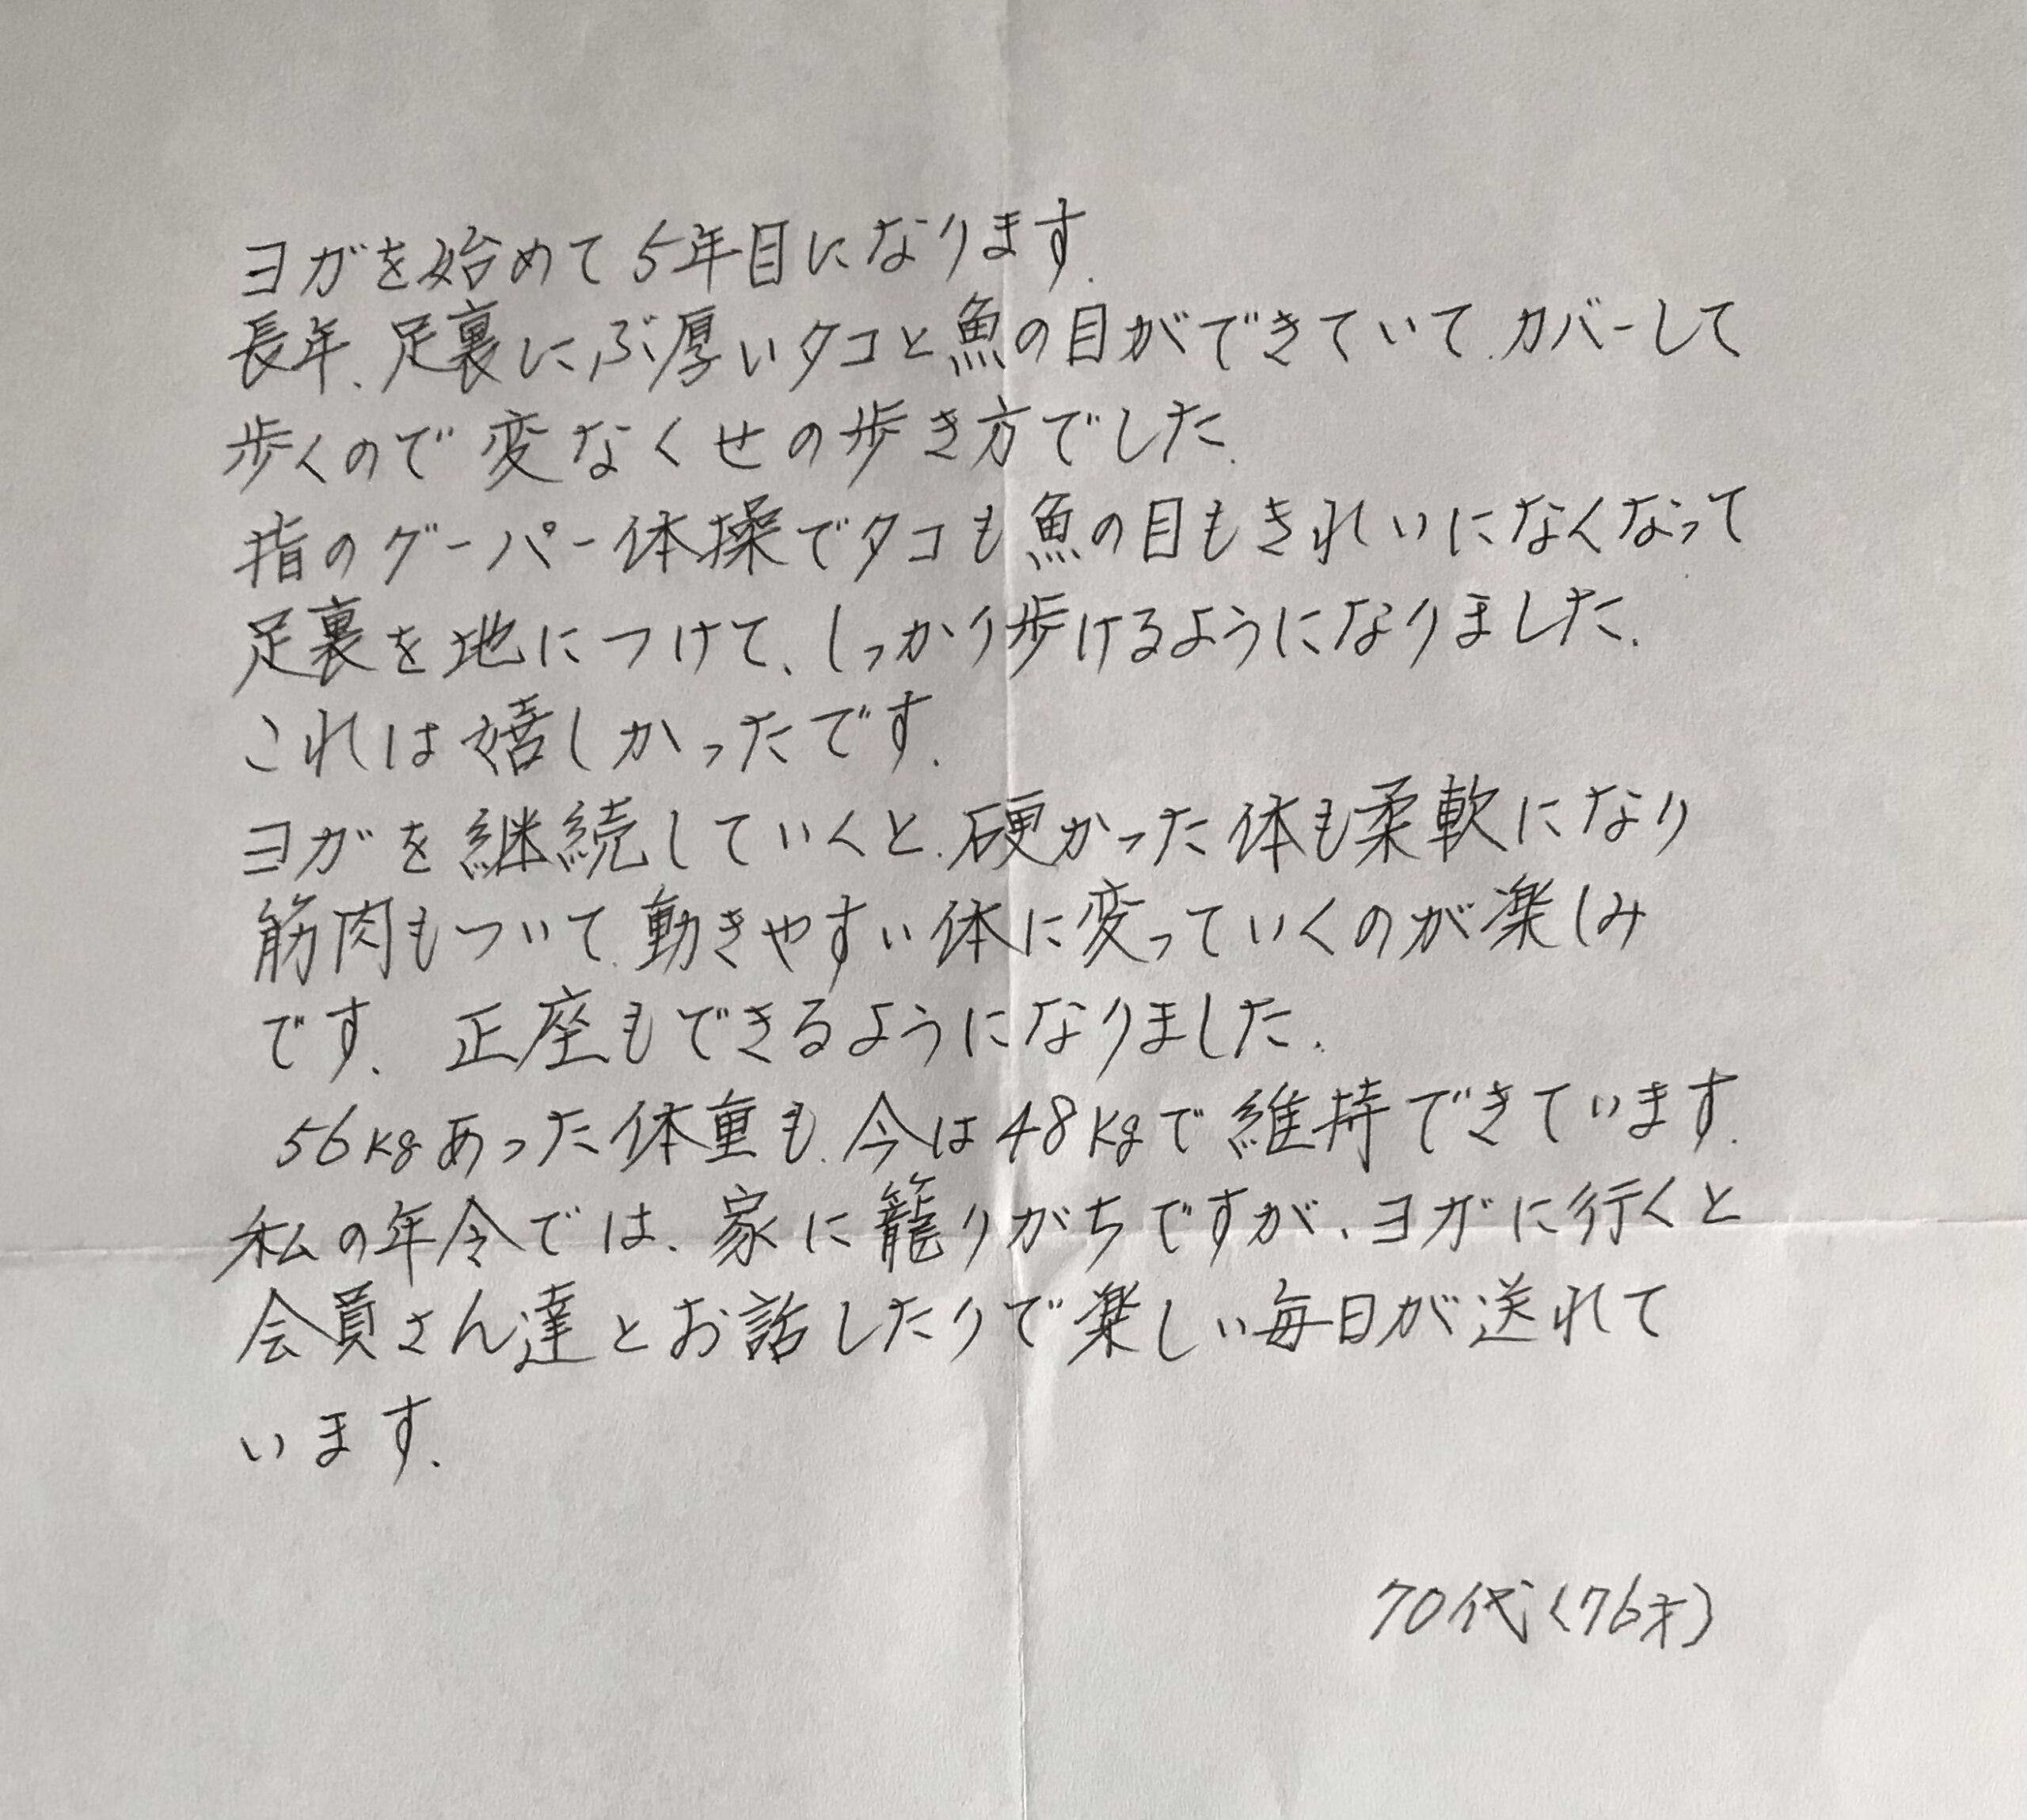 ヨガを始めて5年目になります.
長年、足裏にぶ厚いタコと魚の目ができていて、カバーして
歩くので変なくせの歩き方でした.
指のグーパー体操でタコも魚の目もきれいになくなって
足裏を地につけて、しっかり歩けるようになりました.
これは嬉しかったです.
ヨガを継続していくと、硬かった体も柔軟になり
筋肉もついて、動きやすい体に変っていくのが楽しみ
です. 正座もできるようになりました.
56kgあった体重も、今は48kgで維持できています.
私の年令では、家に籠りがちですが、ヨガに行くと
会員さん達とお話したりで楽しい毎日が送れて
います.
70代(76才)